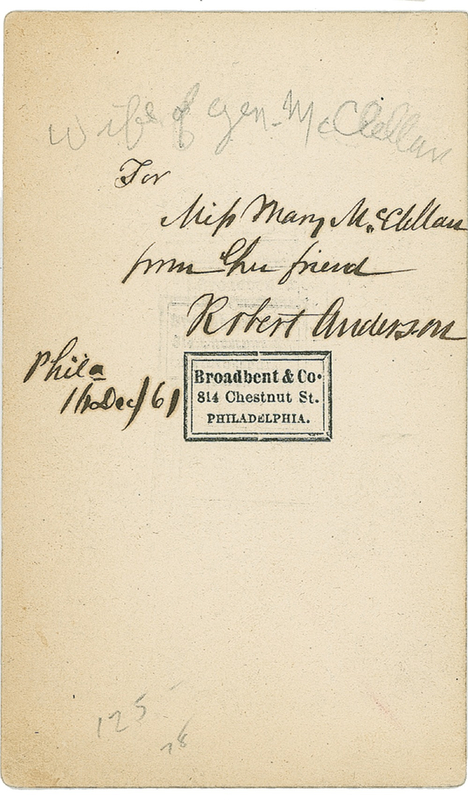 Wife of Gen. McClellan
For
Miss Mary McClellan
from her friend
Robert Anderson
Phila
Dec/61
Broadbent & Co.
814 Chestnut St.
PHILADELPHIA.
125